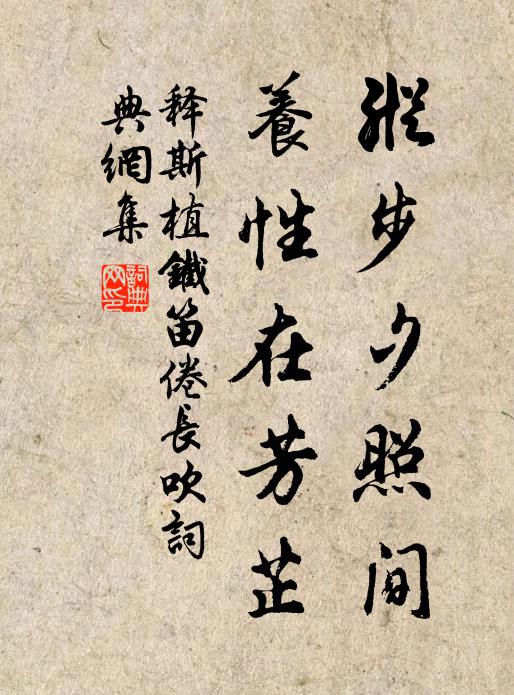 縱步夕照間
養性在芳芷
释斯植鐵笛倦長吹詞
典網集
詞典
网印